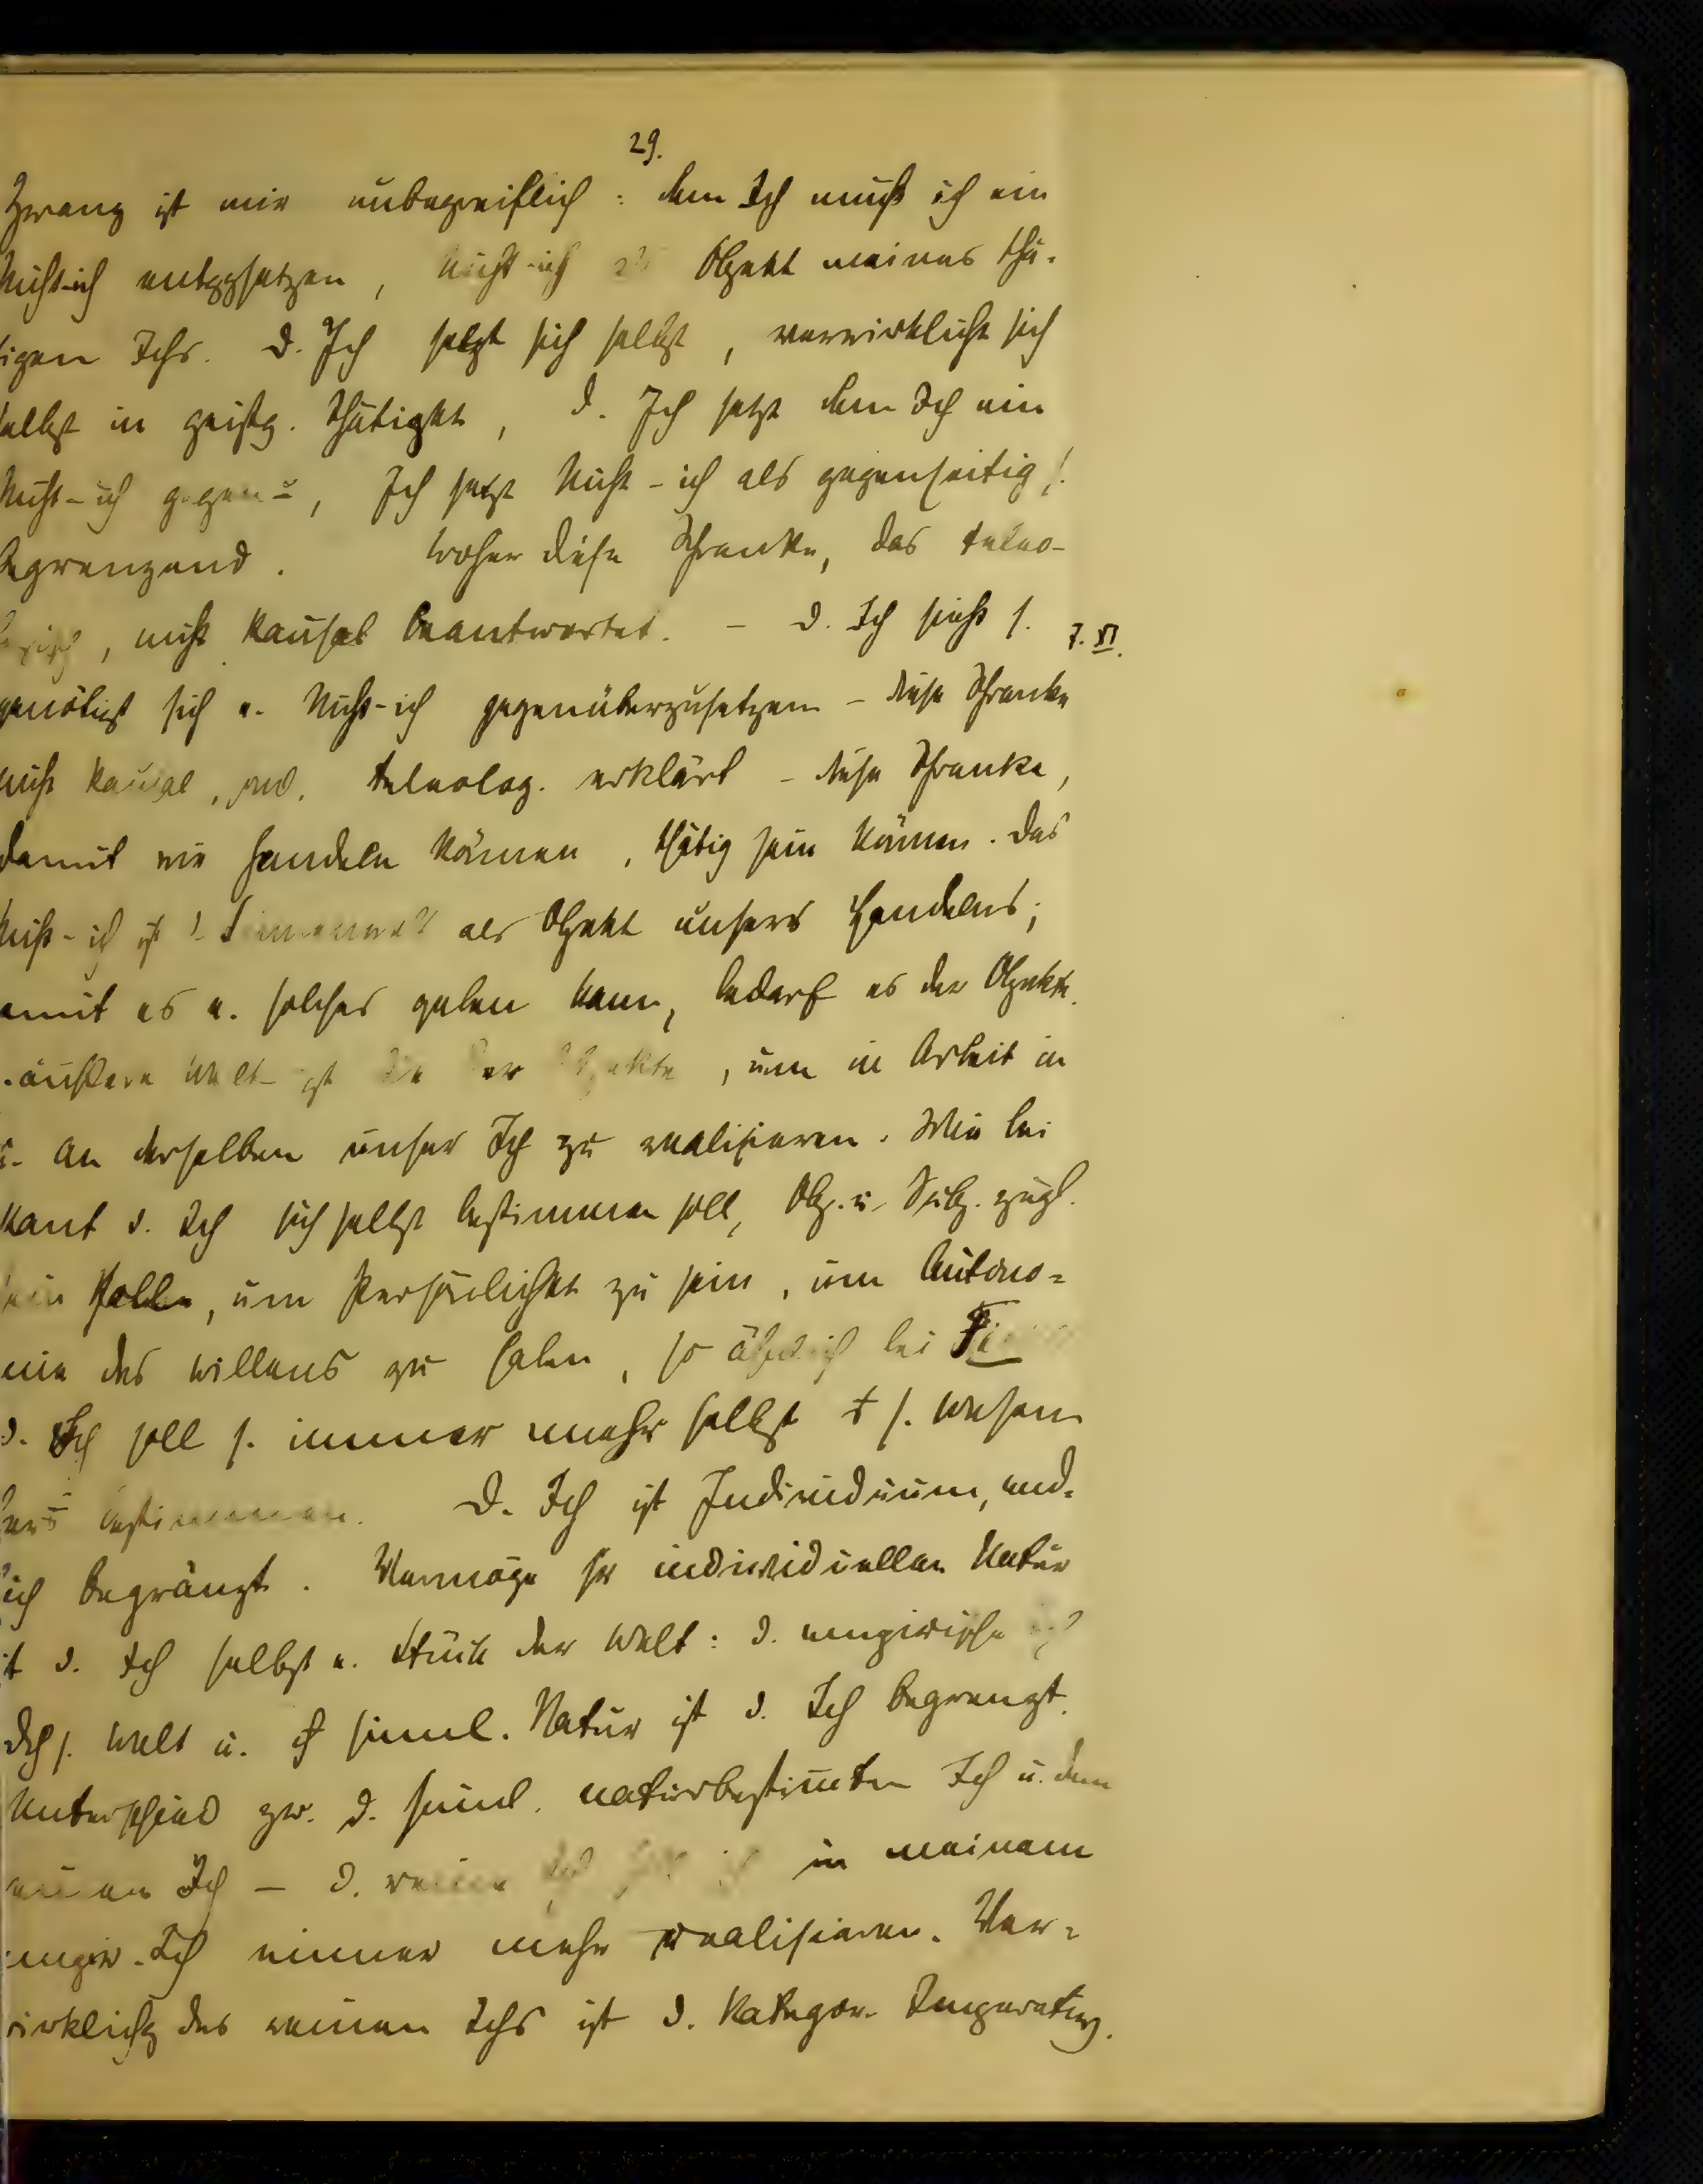 29.
Zwang ist mir unbegreiflich : dem Ich muß ich ein
Nicht-ich entggsetzen, Nicht-ich als Objekt meines thä-
tigen Ichs. D. Ich setzt sich selbst, verwirklicht sich
selbst in geistg. Thätigkt, d. Ich setzt dem Ich ein
Nicht-ich gegenü, Ich setzt Nicht-ich als gegenseitig s.
begrenzend. Woher diese Schranke, das teleo-
logisch, nicht kausal beantwortet. - D. Ich sieht s. 7. XI.
genötigt sich e. Nicht-ich gegenüberzusetzen - diese Schranke
nicht kausal, snd. teleolog. erklärt - diese Schranke,
damit wir handeln können, thätig sein können. Das
Nicht-ich ist d. Sinnenwelt als Objekt unsers Handelns;
damit es e. solches geben kann, bedarf es der Objekte.
äußere Welt ist die der Objekte, um in Arbeit in
u. an derselben unser Ich zu realisieren. Wie bei
Kant d. Ich sich selbst bestimmen soll, Obj. u. Subj. zugl.
sein solle, um Persönlichkt zu sein, um Autono-
mie des Willens zu haben, so ähnlich bei
d. Ich soll s. immer mehr selbst s. Wesen
bestimmen. D. Ich ist Individuum, end-
lich begränzt. Vermöge sr individuellen Natur
ist d. Ich selbst e. Stück der Welt: d. empirische Ich
Dch s. Welt u. sinnl. Natur ist d. Ich begrenzt.
Unterschied zw. d. sinnl. naturbestimmten Ich u. dem
reinen Ich - d. reine Ich soll ich in meinem
empir. Ich immer mehr realisieren. Ver-
wirklichg des reinen Ichs ist d. Kategor. Imperativ.